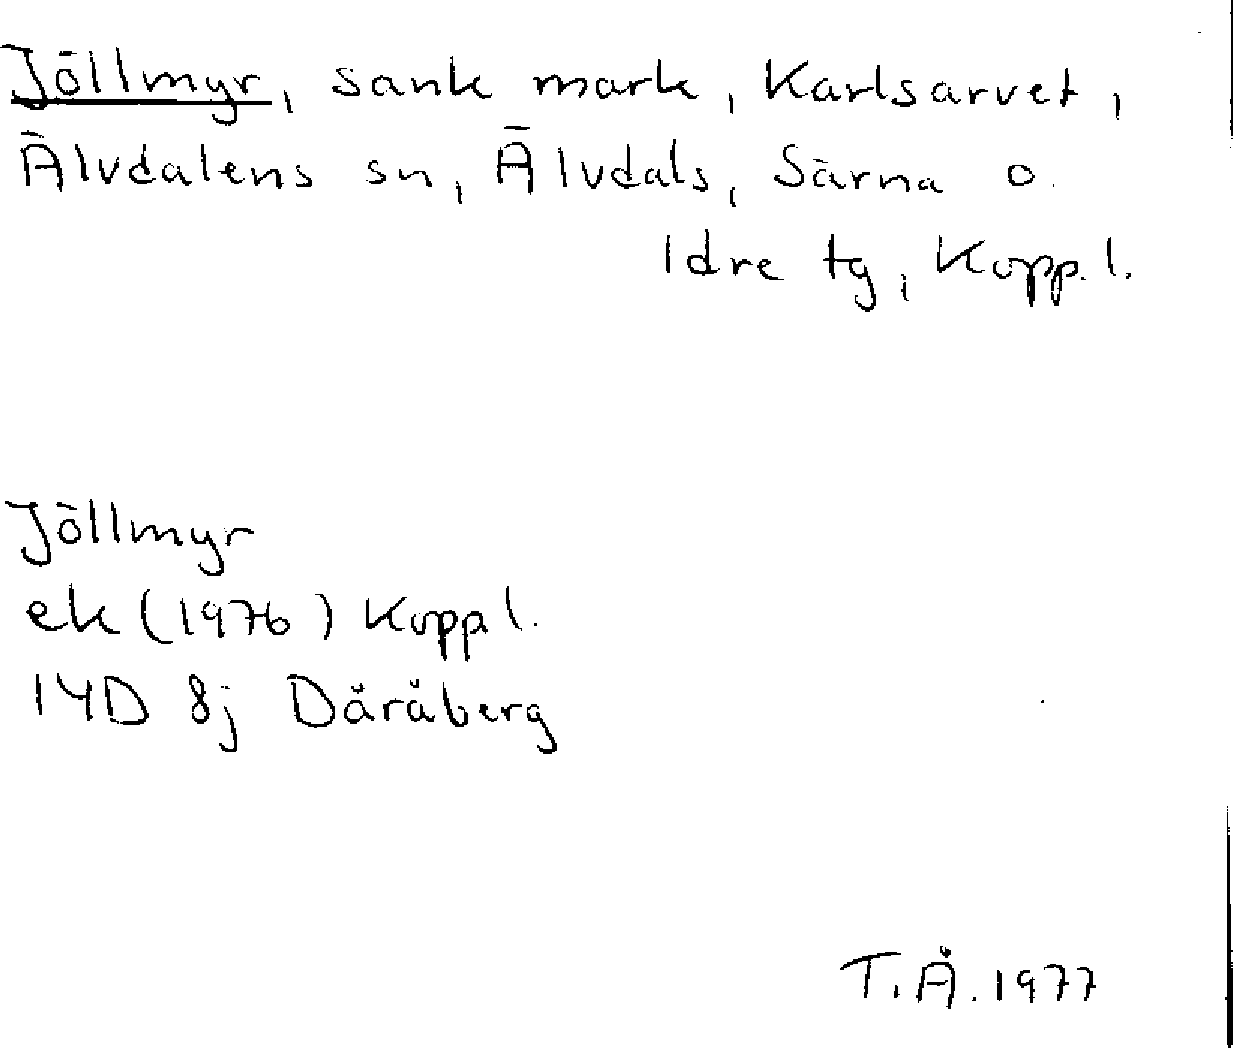 Jöllmyr, sank mark, Karlsarvet,
Älvdalens sn, Älvdals, Särna o.
Idre tg, Kopp. l.
Jöllmyr
ek (1976) Kopp l.
14D 8j Dåråberg
T.Å. 1977